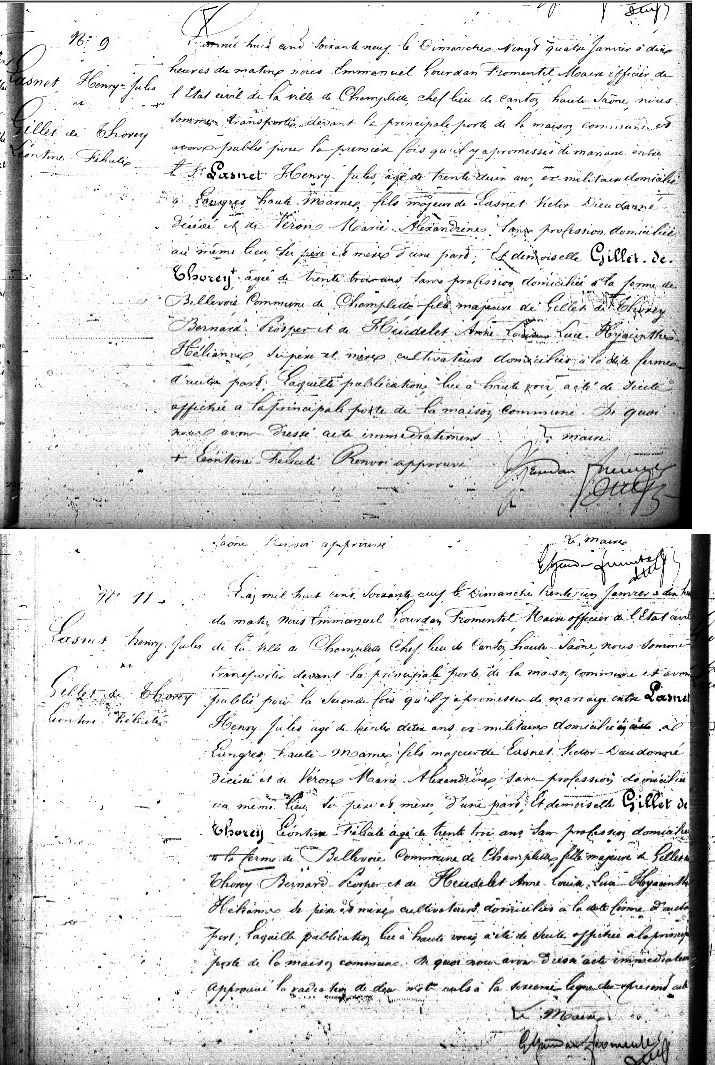 N° 9
Lasnet Henry-Jules
et
Gillet de Thorey
Léontine Félicité
L'année huit cent soixante neuf le Dimanche vingt quatre Janvier à dix
heures du matin nous Emmanuel Gourdan Fromentel, Maire officier de
l'Etat civil de la ville de Champlitte chef lieu de canton, haute Saône, nous
sommes transportés devant la principale porte de la maison commune et
avons publié pour la première fois qu'il y a promesse de mariage entre
le Sr Lasnet Henry Jules, âgé de trente deux ans ex militaire domicilié
à Langres haute Marne, fils majeur de Lasnet Victor Dieudonné
décédé et de Véron Marie Alexandrine, sans profession domiciliée
au même lieu ses père et mère d'une part; Et demoiselle Gillet-de-
Thorey + âgée de trente trois ans sans profession domiciliée à la ferme de
Bellevoie Commune de Champlitte fille majeure de Gillet de Thorey
Bernard Prosper et de Heudelet Anne Louise Luce Hyacinthe
Hélianne, ses père et mère cultivateurs domiciliés à la dite ferme
d'autre part; Laquelle publication, lue à haute voix, a été de suite
affichée à la principale porte de la maison commune. De quoi
nous avons dressé acte immédiatement
Le maire
+ Léontine Félicité Renvoi approuvé
Saône Renvoi approuvé
Le Maire
N° 11
Lasnet Henry Jules
et
Gillet de Thorey
Léontine Félicité
L'an mil huit cent soixante neuf le Dimanche trente un Janvier à dix heures
du matin, nous Emmanuel Gourdan Fromentel, Maire officier de l'Etat civil
de la ville de Champlitte Chef lieu de Canton haute Saône, nous sommes
transportés devant la principale porte de la maison commune et avons
publié pour la seconde fois qu'il y a promesse de mariage entre Lasnet
Henry Jules âgé de trente deux ans ex militaire domicilié à
Langres, haute Marne fils majeur de Lasnet Victor Dieudonné
décédé et de Véron Marie Alexandrine, sans profession domiciliée
au même lieu, ses père et mère, d'une part; Et demoiselle Gillet de
Thorey Léontine Félicité âgée de trente trois ans sans profession domiciliée
à la ferme de Bellevoie Commune de Champlitte, fille majeure de Gillet de
Thorey Bernard Prosper et de Heudelet Anne Louise Luce Hyacinthe
Hélianne ses père et mère cultivateurs domiciliés à la dite ferme d'autre
part; Laquelle publication lue à haute voix, a été de suite affichée à la principale
porte de la maison commune. De quoi nous avons dressé acte immédiatement
approuvé la radiation de deux mots nuls à la sixième ligne du présent acte
Le Maire